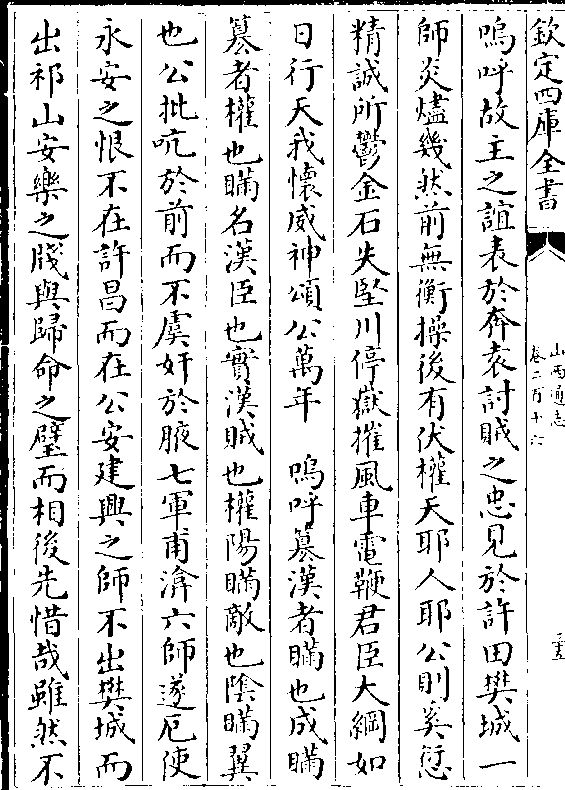 欽定四庫全書
山西通志
卷二百十六
三五
嗚呼故主之誼表於奔袁討賊之忠見於許田樊城一
師炎燼幾然前無衡操後有伏權天耶人耶公則奚愆
精誠所鬱金石失堅川停嶽摧風車電鞭君臣大綱如
日行天我懷威神頌公萬年　嗚呼簒漢者瞞也成瞞
簒者權也瞞名漢臣也實漢賊也權陽瞞敵也陰瞞翼
也公批吭於前而不虞奸於腋七軍甫渰六師遂厄使
永安之恨不在許昌而在公安建興之師不出樊城而
出祁山安樂之牋與歸命之璧而相後先惜哉雖然不